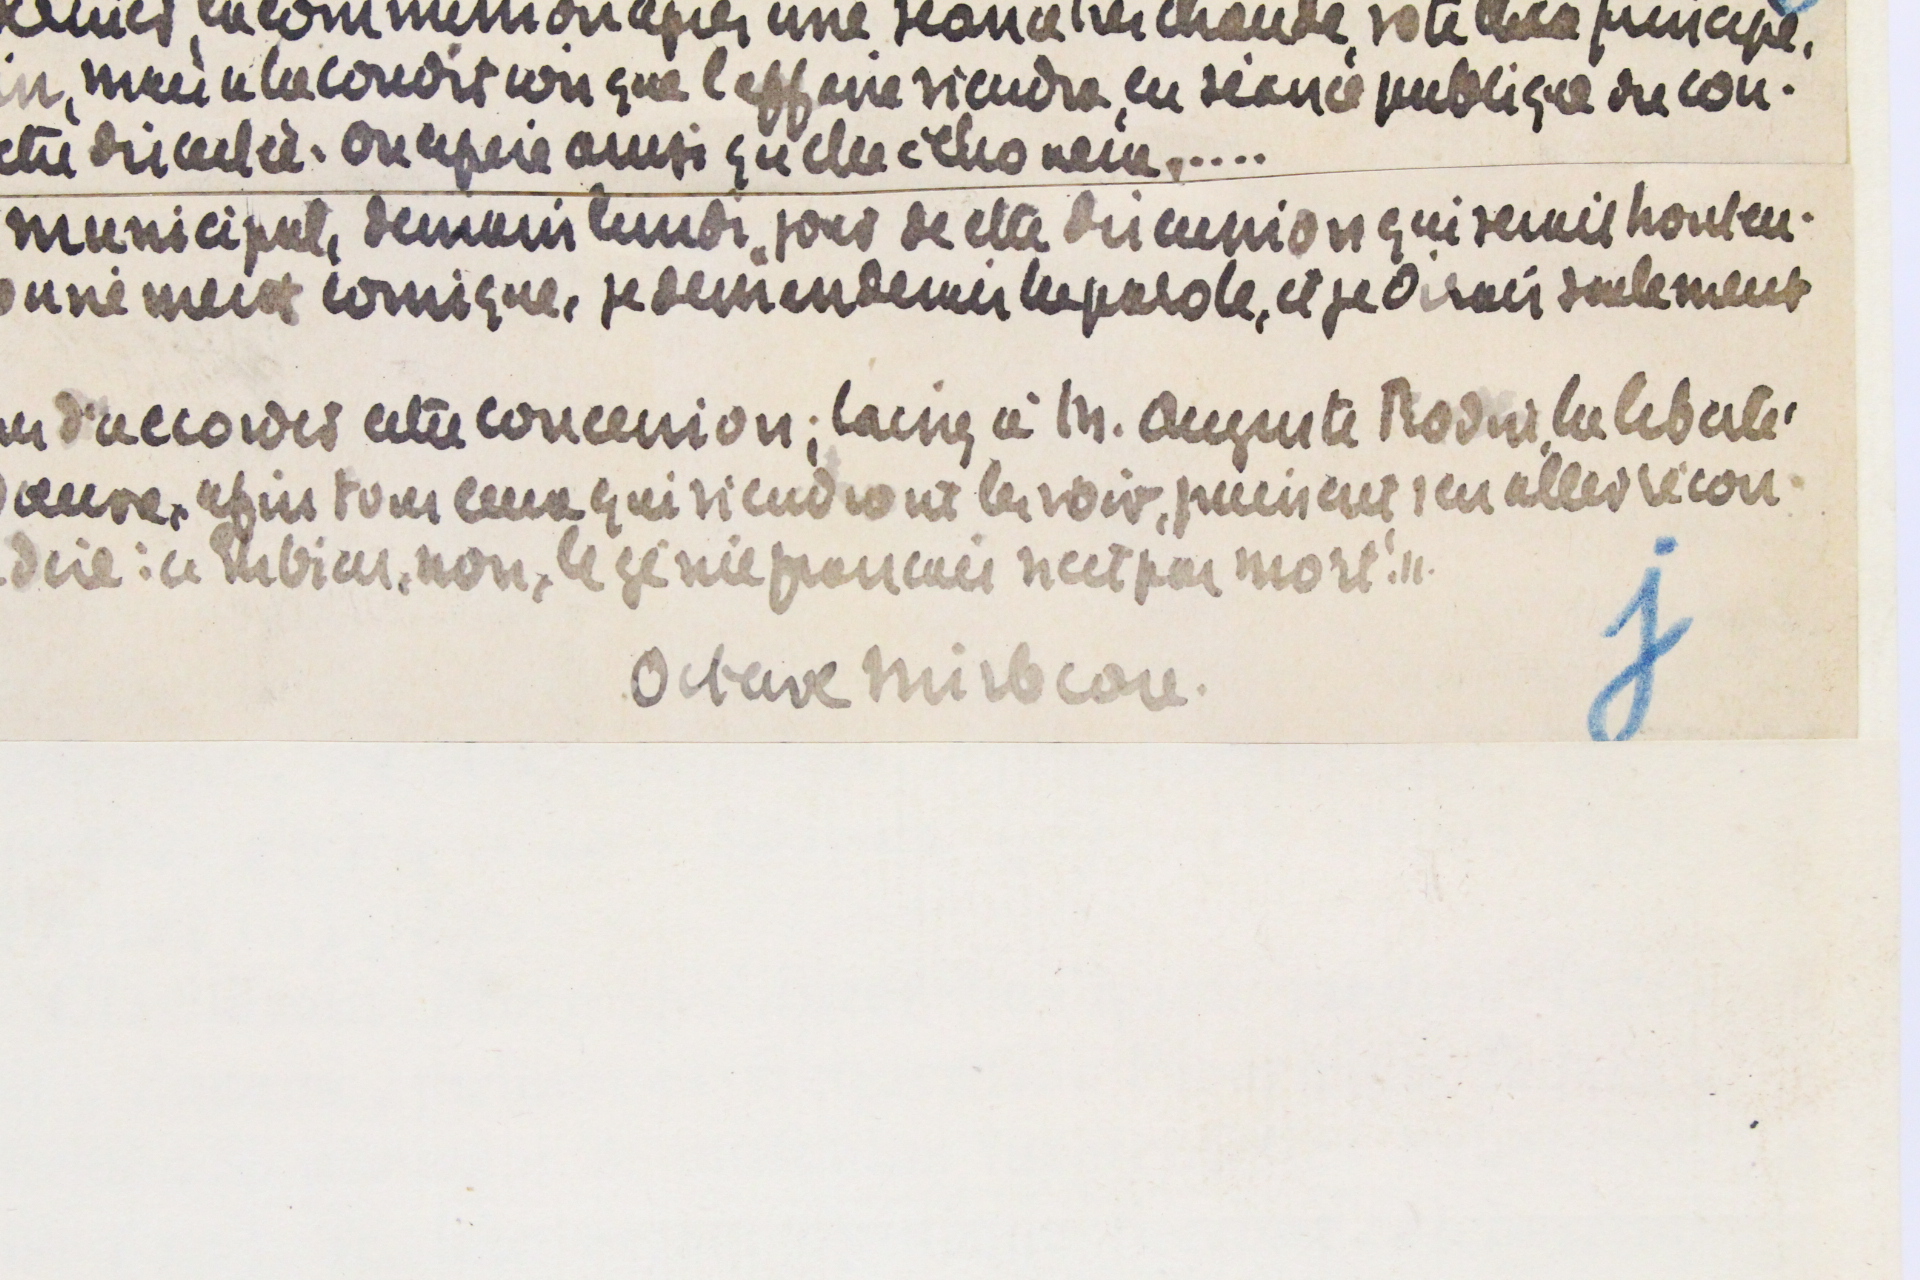 la commission après une séance très chaude, vote le principe,
in, mais à la condition que l'affaire viendra, en séance publique du con-
discutée. On espère ainsi qu'elle échouera.....
municipal, demain lundi, jour de cette discussion qui serait honteu-
comique, je demanderais la parole, et je dirais seulement
d'accorder cette concession; laissez à M. Auguste Rodin, la liberté
œuvre, afin tous ceux qui viendront les voir, puissent s'en aller récon-
dire: eh bien, non, le génie français n'est pas mort!..
Octave Mirbeau.
j